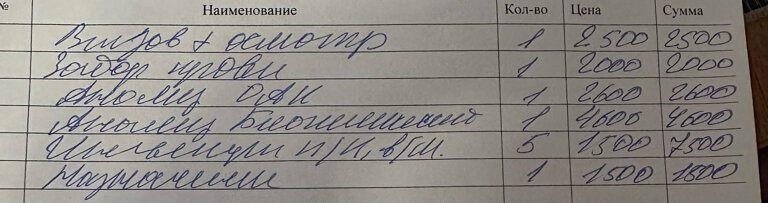 № Наименование Кол-во Цена Сумма
Вызов + осмотр 1 2500 2500
Забор крови 1 2000 2000
Анализ ОАК 1 2600 2600
Анализ Биохимический 1 4600 4600
Инъекции п/к, в/м. 5 1500 7500
Назначение 1 1500 1500